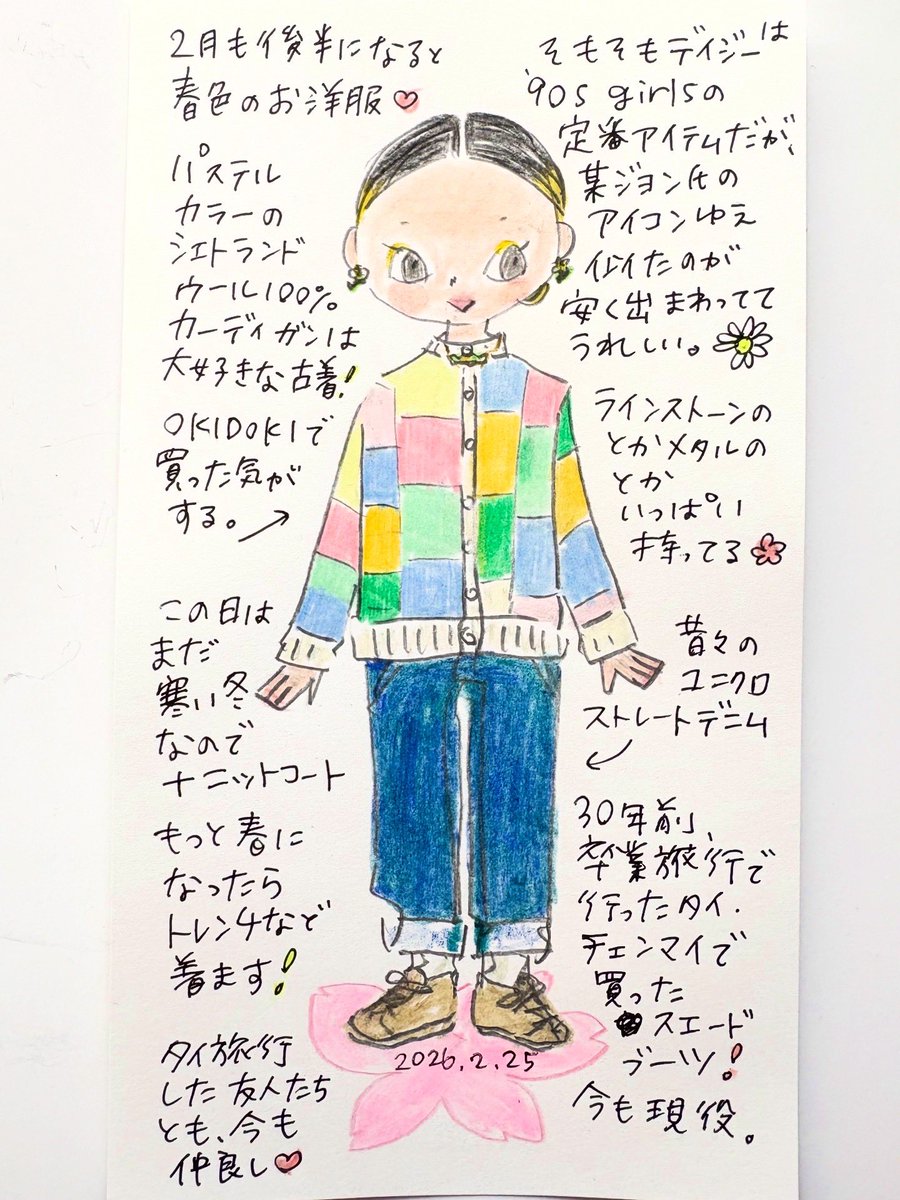 2月も後半になると
春色のお洋服♡
パステル
カラーの
シェトランド
ウール100%
カーディガンは
大好きな古着!
OKIDOKIで
買った気が
する。→
この日は
まだ
寒い冬
なので
+ニットコート
もっと春に
なったら
トレンチなど
着ます!
タイ旅行
した友人たち
とも、今も
仲良し♡
そもそもデイジーは
'90s girlsの
定番アイテムだが、
某ジョン氏の
アイコンゆえ
似たのが
安く出まわってて
うれしい。
ラインストーンの
とかメタルの
とか
いっぱい
持ってる
昔々の
ユニクロ
ストレートデニム
←
30年前、
卒業旅行で
行ったタイ・
チェンマイで
買った
スエード
ブーツ!
今も現役。
2026.2.25